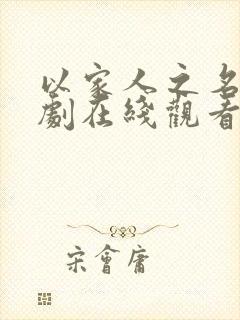 以家人之名
劇在綫觀看
宋會庸